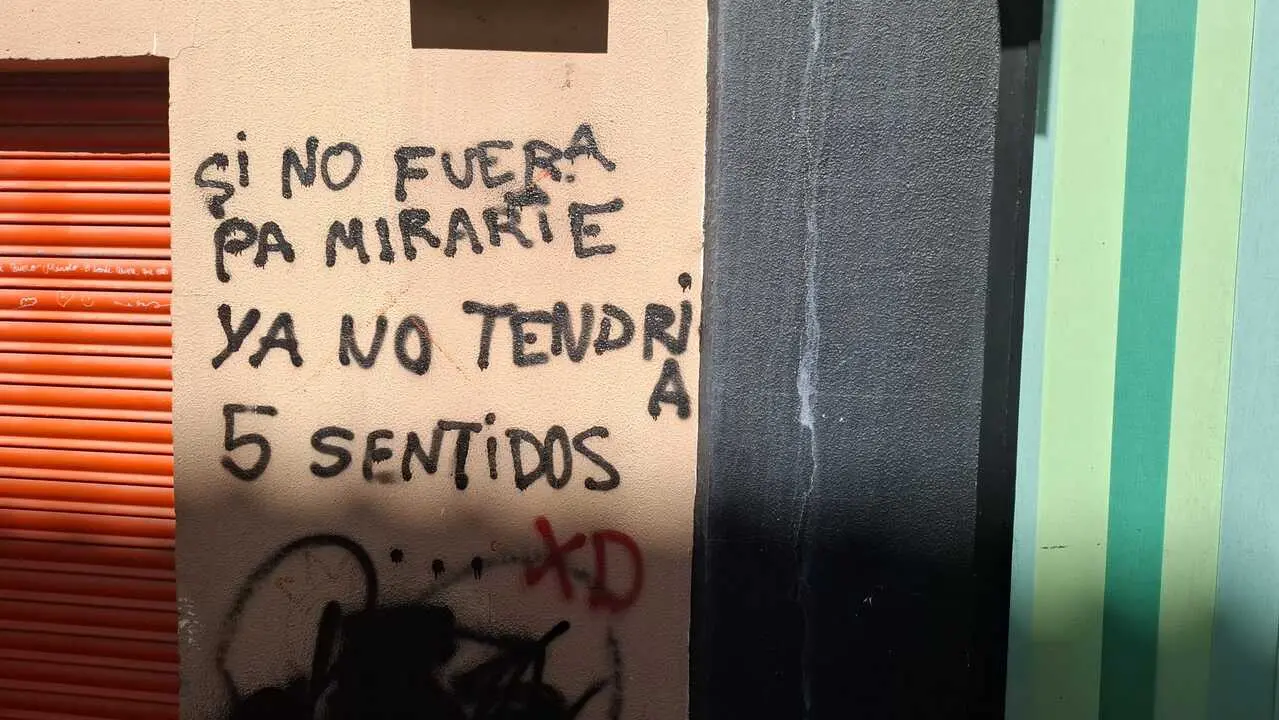 Si NO FUERA
PA MIRARTE
YA NO TENDRi
A
5 SENTiDOS
...
XD